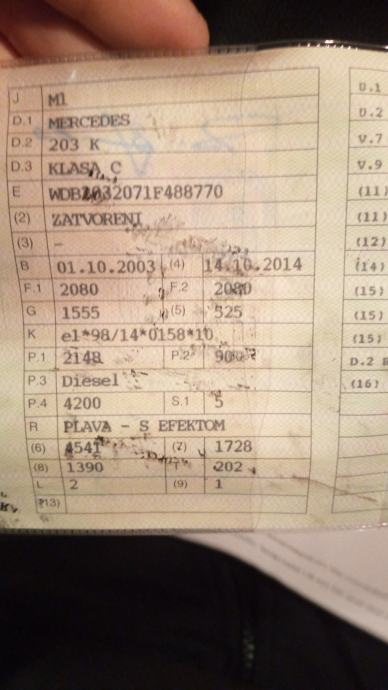 J M1
D.1 MERCEDES
D.2 203 K
D.3 KLASA C
E WDB2032071F488770
(2) ZATVORENI
(3) –
B 01.10.2003 (4) 14.10.2014
F.1 2080 F.2 2080
G 1555 (5) 525
K e1*98/14*0158*10
P.1 2148 P.2
P.3 Diesel
P.4 4200 S.1 5
R PLAVA - S EFEKTOM
(6) 4541 (7) 1728
(8) 1390 202
L 2 (9) 1
D.1
D.2
V.7
V.9
(11)
(11)
(12)
(14)
(15)
(15)
(15)
D.2
(16)